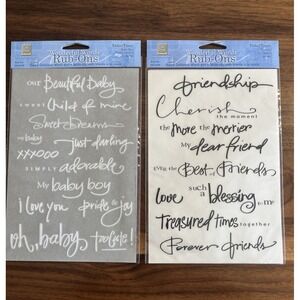 Wonderful Words
Run-Ons
our Beautiful Baby
sweet Child of mine
Sweet dreams
my baby just darling
xxxooo
SIMPLY adorable
My baby boy
i love you pride & joy
oh, baby
Wonderful Words
Run-Ons
friendship
Cherish
the moment
the more the merrier
My dear friend
Best of friends
love such a blessing to me
Treasured times together
Forever friends